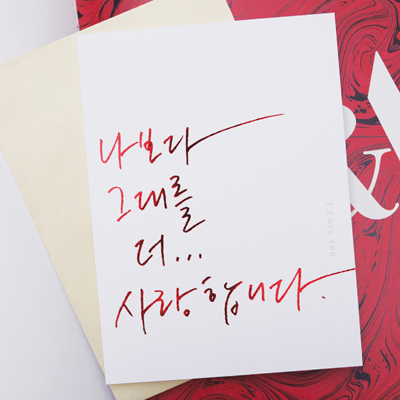 나보다
그대를
더...
사랑합니다.
I love you
&